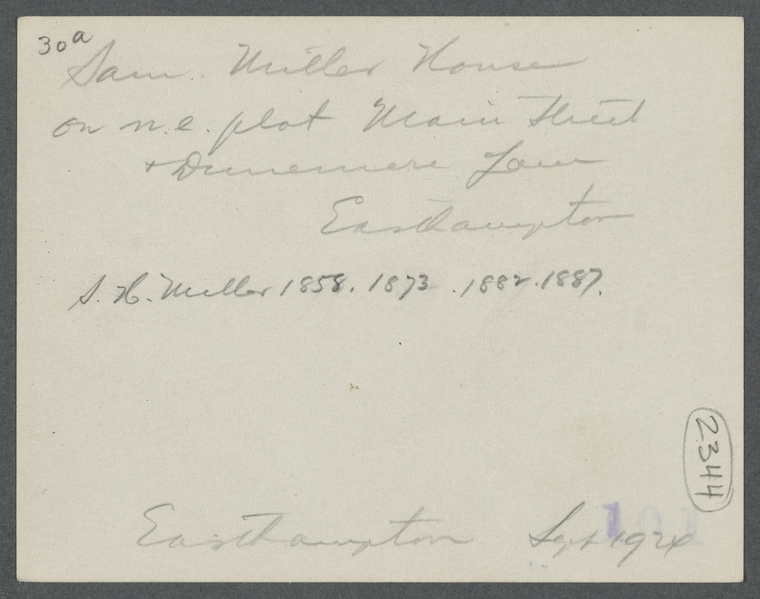 30a
Sam. Miller House
on n.e. plot Main Street
+ Dunemere Lane
Easthampton
S. H. Miller 1858. 1873. 1882. 1887.
2344
Easthampton Sept 1924
101